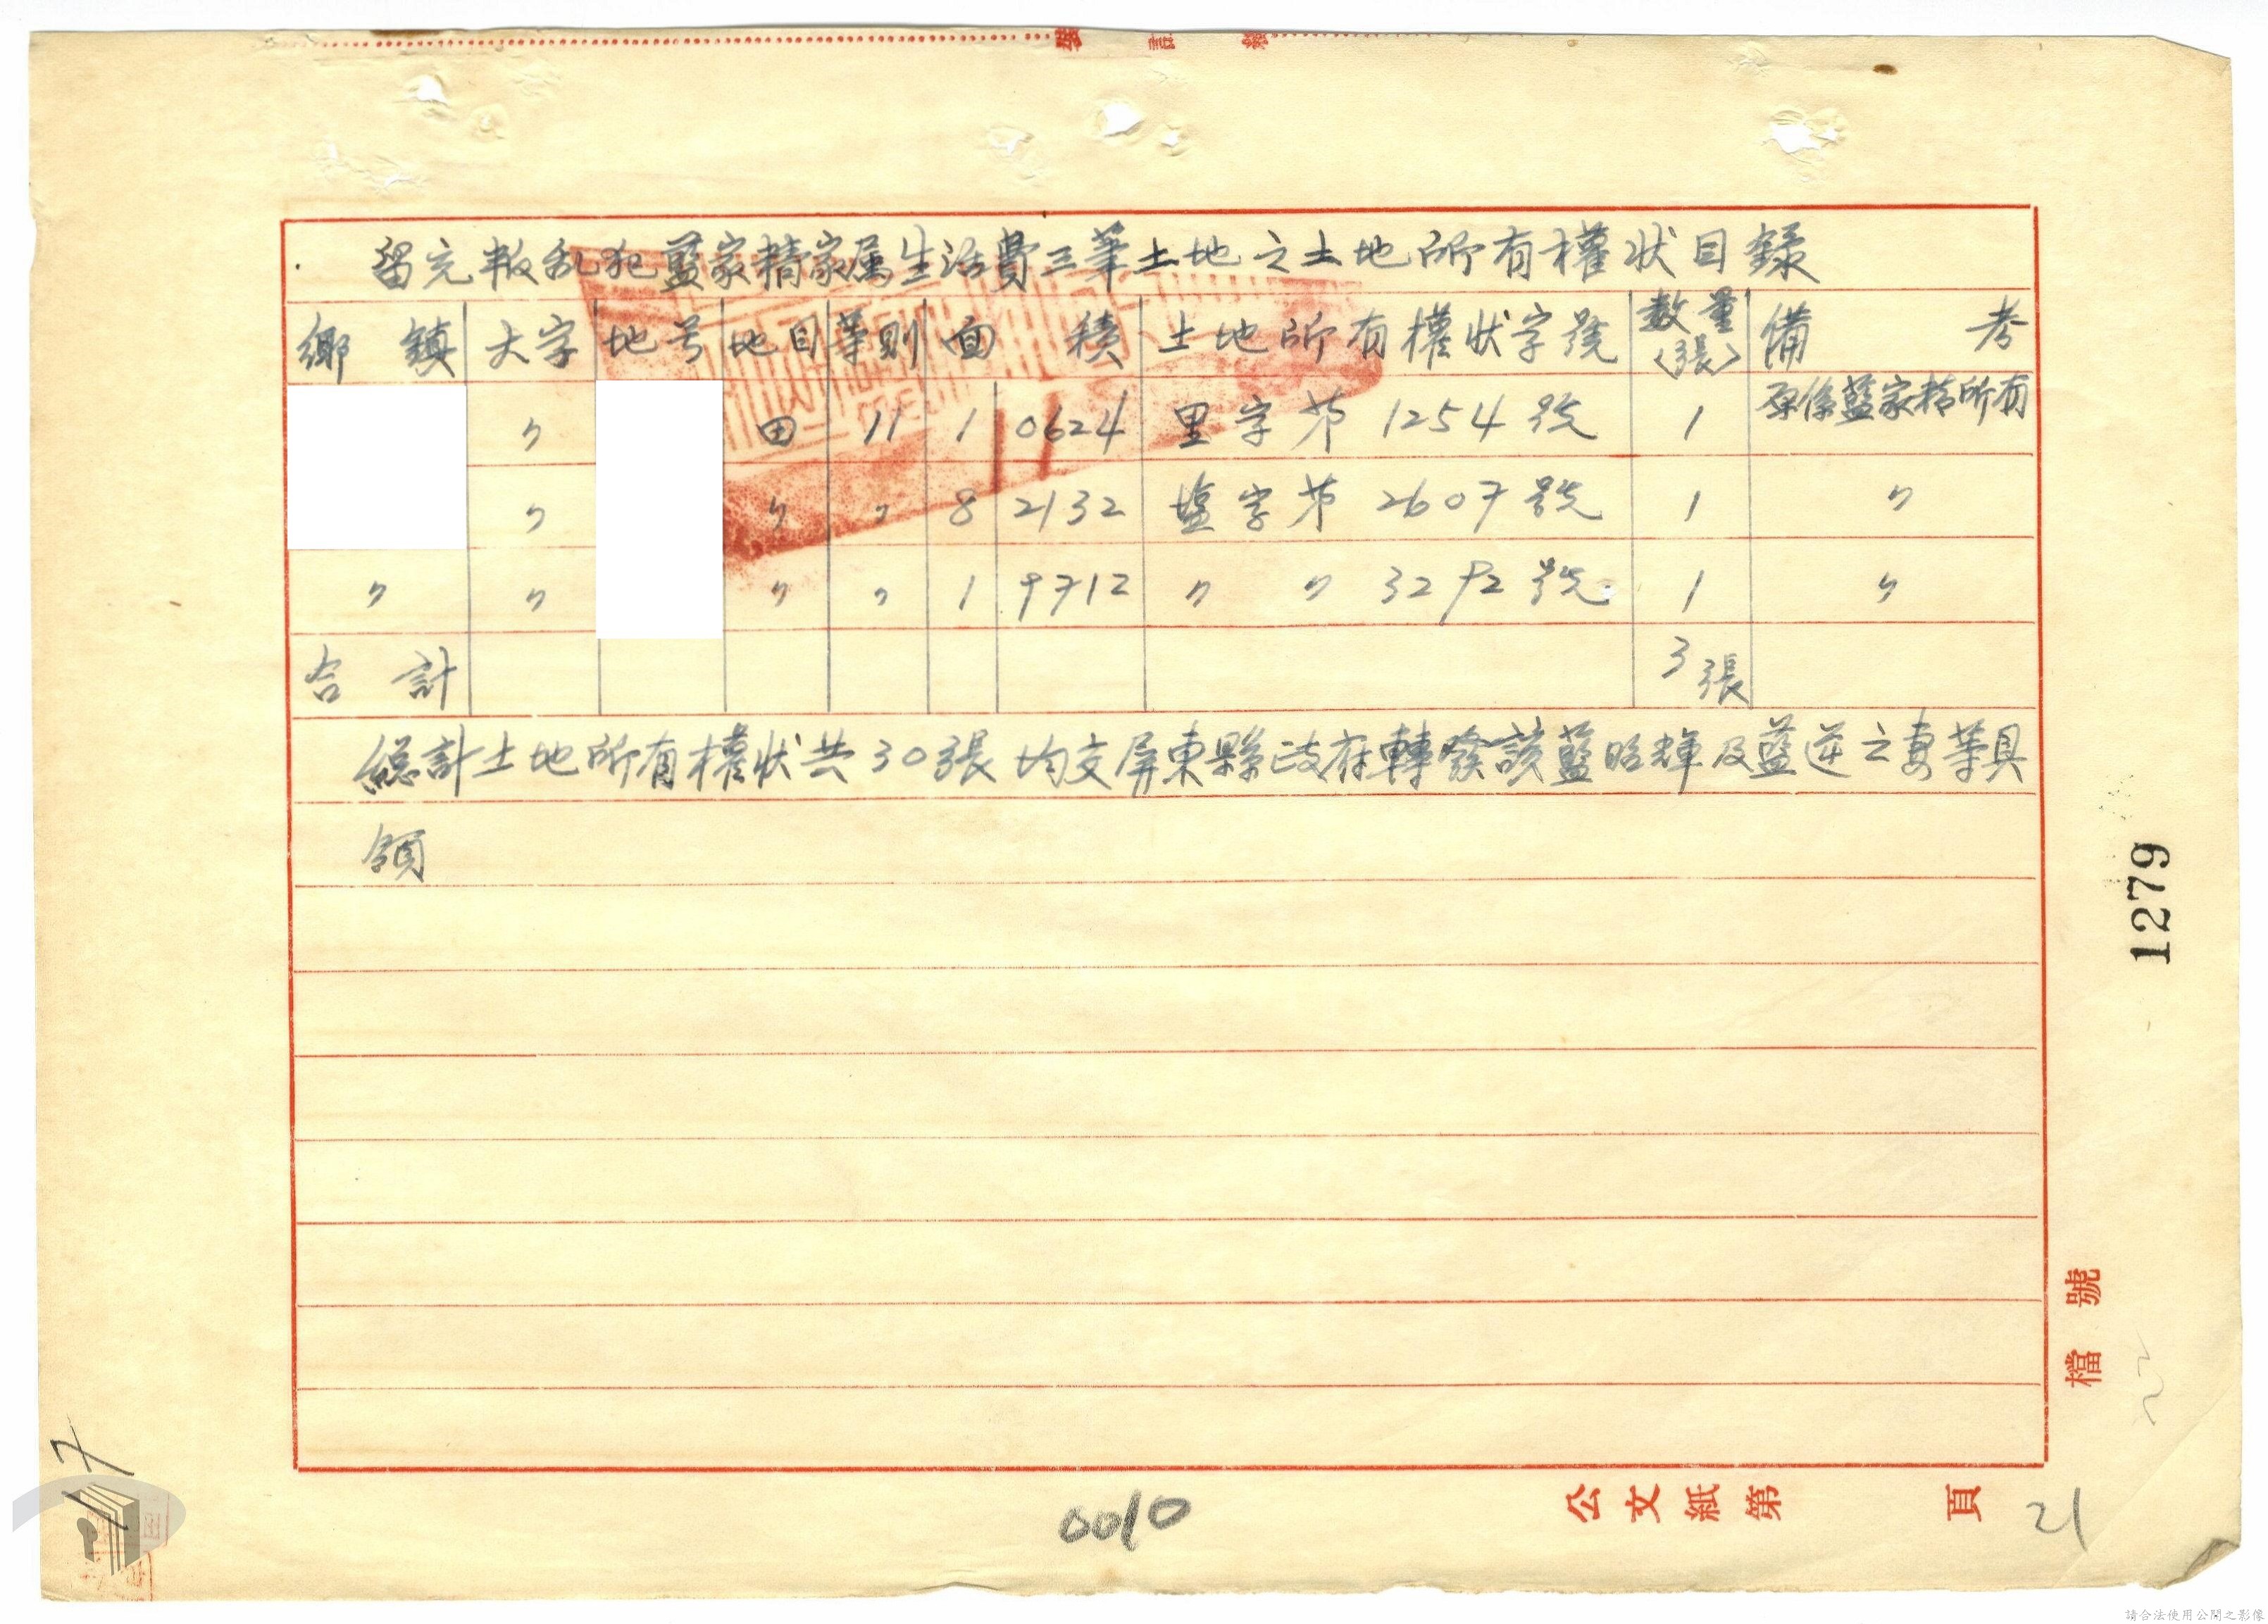 留充叛乱犯藍家精家属生活費三筆土地之土地所有權状目録
鄉鎮 大字 地号 地目 等則 面積 土地所有權状字號 数量(張) 備考
〃 田 11 1 0624 里字第1254號 1 原係藍家精所有
〃 〃 〃 8 2132 塩字第2607號 1 〃
〃 〃 〃 〃 1 9712 〃 〃 3292號 1 〃
合計 3張
總計土地所有權状共30張均交屏東縣政府轉發該藍昭輝及藍逆之妻等具
領
1279
檔號
公文紙第 頁 21
0010
17
請合法使用公開之影像